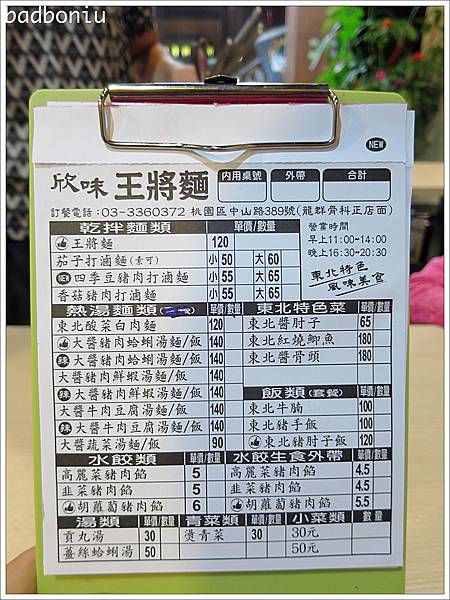 badboniu
NEW
欣味 王將麵 內用桌號 外帶 合計
訂餐電話：03-3360372 桃園區中山路389號(龍群骨科正店面)
乾拌麵類 單價/數量
👍王將麵 120
茄子打滷麵(素可) 小50 大60
NEW 四季豆豬肉打滷麵 小55 大65
香菇豬肉打滷麵 小55 大65
營業時間
早上11:00~14:00
晚上16:30~20:30
東北特色
風味美食
熱湯麵類 單價/數量
東北酸菜白肉麵 120
👍大醬豬肉蛤蜊湯麵/飯 140
辣 大醬豬肉蛤蜊湯麵/飯 140
大醬豬肉鮮蝦湯麵/飯 140
辣 大醬豬肉鮮蝦湯麵/飯 140
大醬牛肉豆腐湯麵/飯 140
辣 大醬牛肉豆腐湯麵/飯 140
大醬蔬菜湯麵/飯 90
東北特色菜 單價/數量
東北醬肘子 65
東北紅燒鯽魚 180
東北醬骨頭 180
飯類(套餐) 單價/數量
東北牛腩 100
東北豬手飯 100
👍東北豬肘子飯 120
水餃類 單價/數量
高麗菜豬肉餡 5
韭菜豬肉餡 5
👍胡蘿蔔豬肉餡 6
水餃生食外帶 單價/數量
高麗菜豬肉餡 4.5
韭菜豬肉餡 4.5
👍胡蘿蔔豬肉餡 5.5
湯類 單價/數量
貢丸湯 30
薑絲蛤蜊湯 50
青菜類 單價/數量
燙青菜 30
小菜類 數量
30元
50元